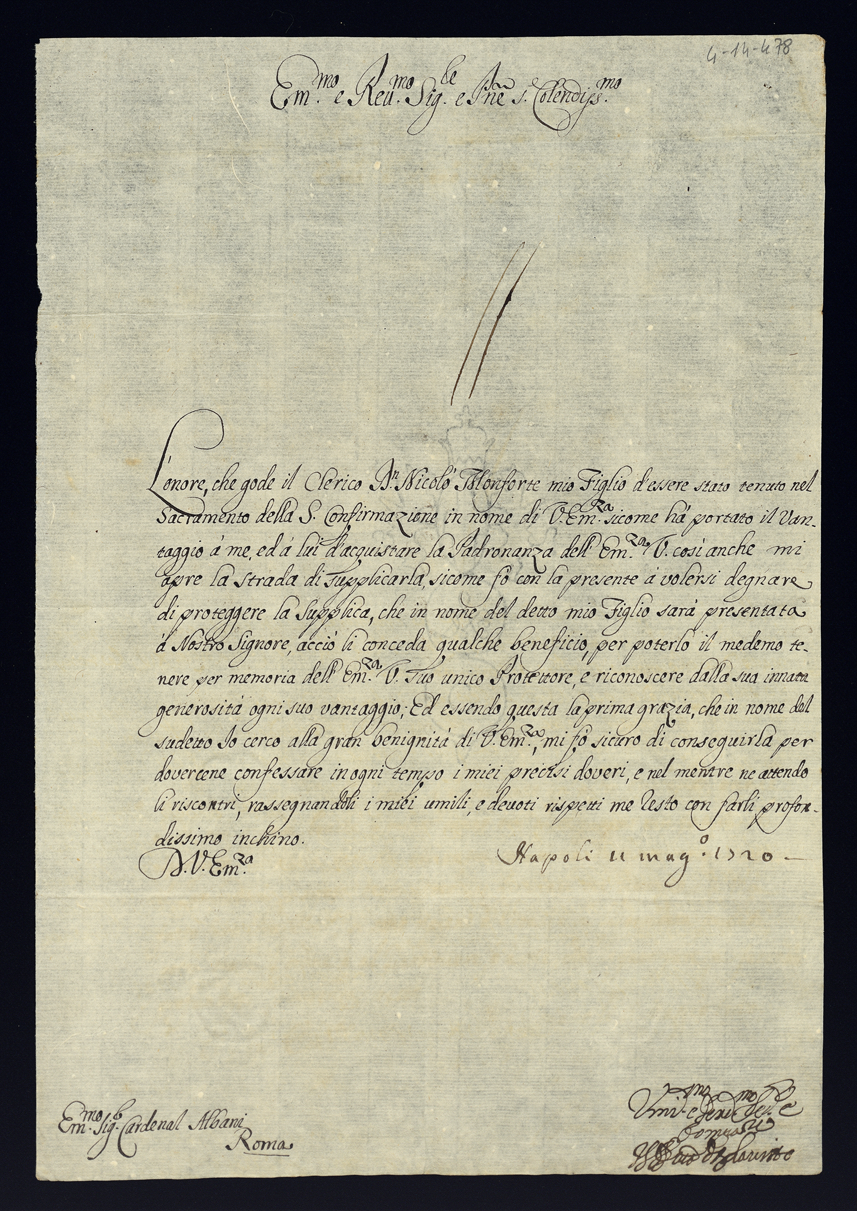 4-14-478
Em.mo e Reu.mo Sig.le e Pñe s. Colendiss.mo
L'onore, che gode il Clerico Dn. Nicolò Monforte mio Figlio d'essere stato tenuto nel
Sacramento della S. Confirmazione in nome di V. Em.za sicome há portato il Van-
taggio á me, ed á lui d'acquistare la Padronanza dell'Em.za V. cosi anche mi
apre la strada di supplicarla, sicome fò con la presente á volersi degnare
di proteggere la supplica, che in nome del detto mio Figlio sará presentata
á Nostro Signore, acció li conceda qualche beneficio, per poterlo il medemo te-
nere per memoria dell'Em.za V. suo unico Protettore, e riconoscere dalla sua innata
generositá ogni suo vantaggio; Ed essendo questa la prima grazia, che in nome del
sudetto Io cerco alla gran benignitá di V. Em.za, mi fò sicuro di conseguirla per
dovercene confessare in ogni tempo i miei precisi doveri, e nel mentre ne attendo
li riscontri, rassegnandoli i miei umili, e devoti rispetti me resto con farli profon-
dissimo inchino.
D. V. Em.za
Napoli 11 mag.o 1720
Em.mo Sig. Cardenal Albani
Roma